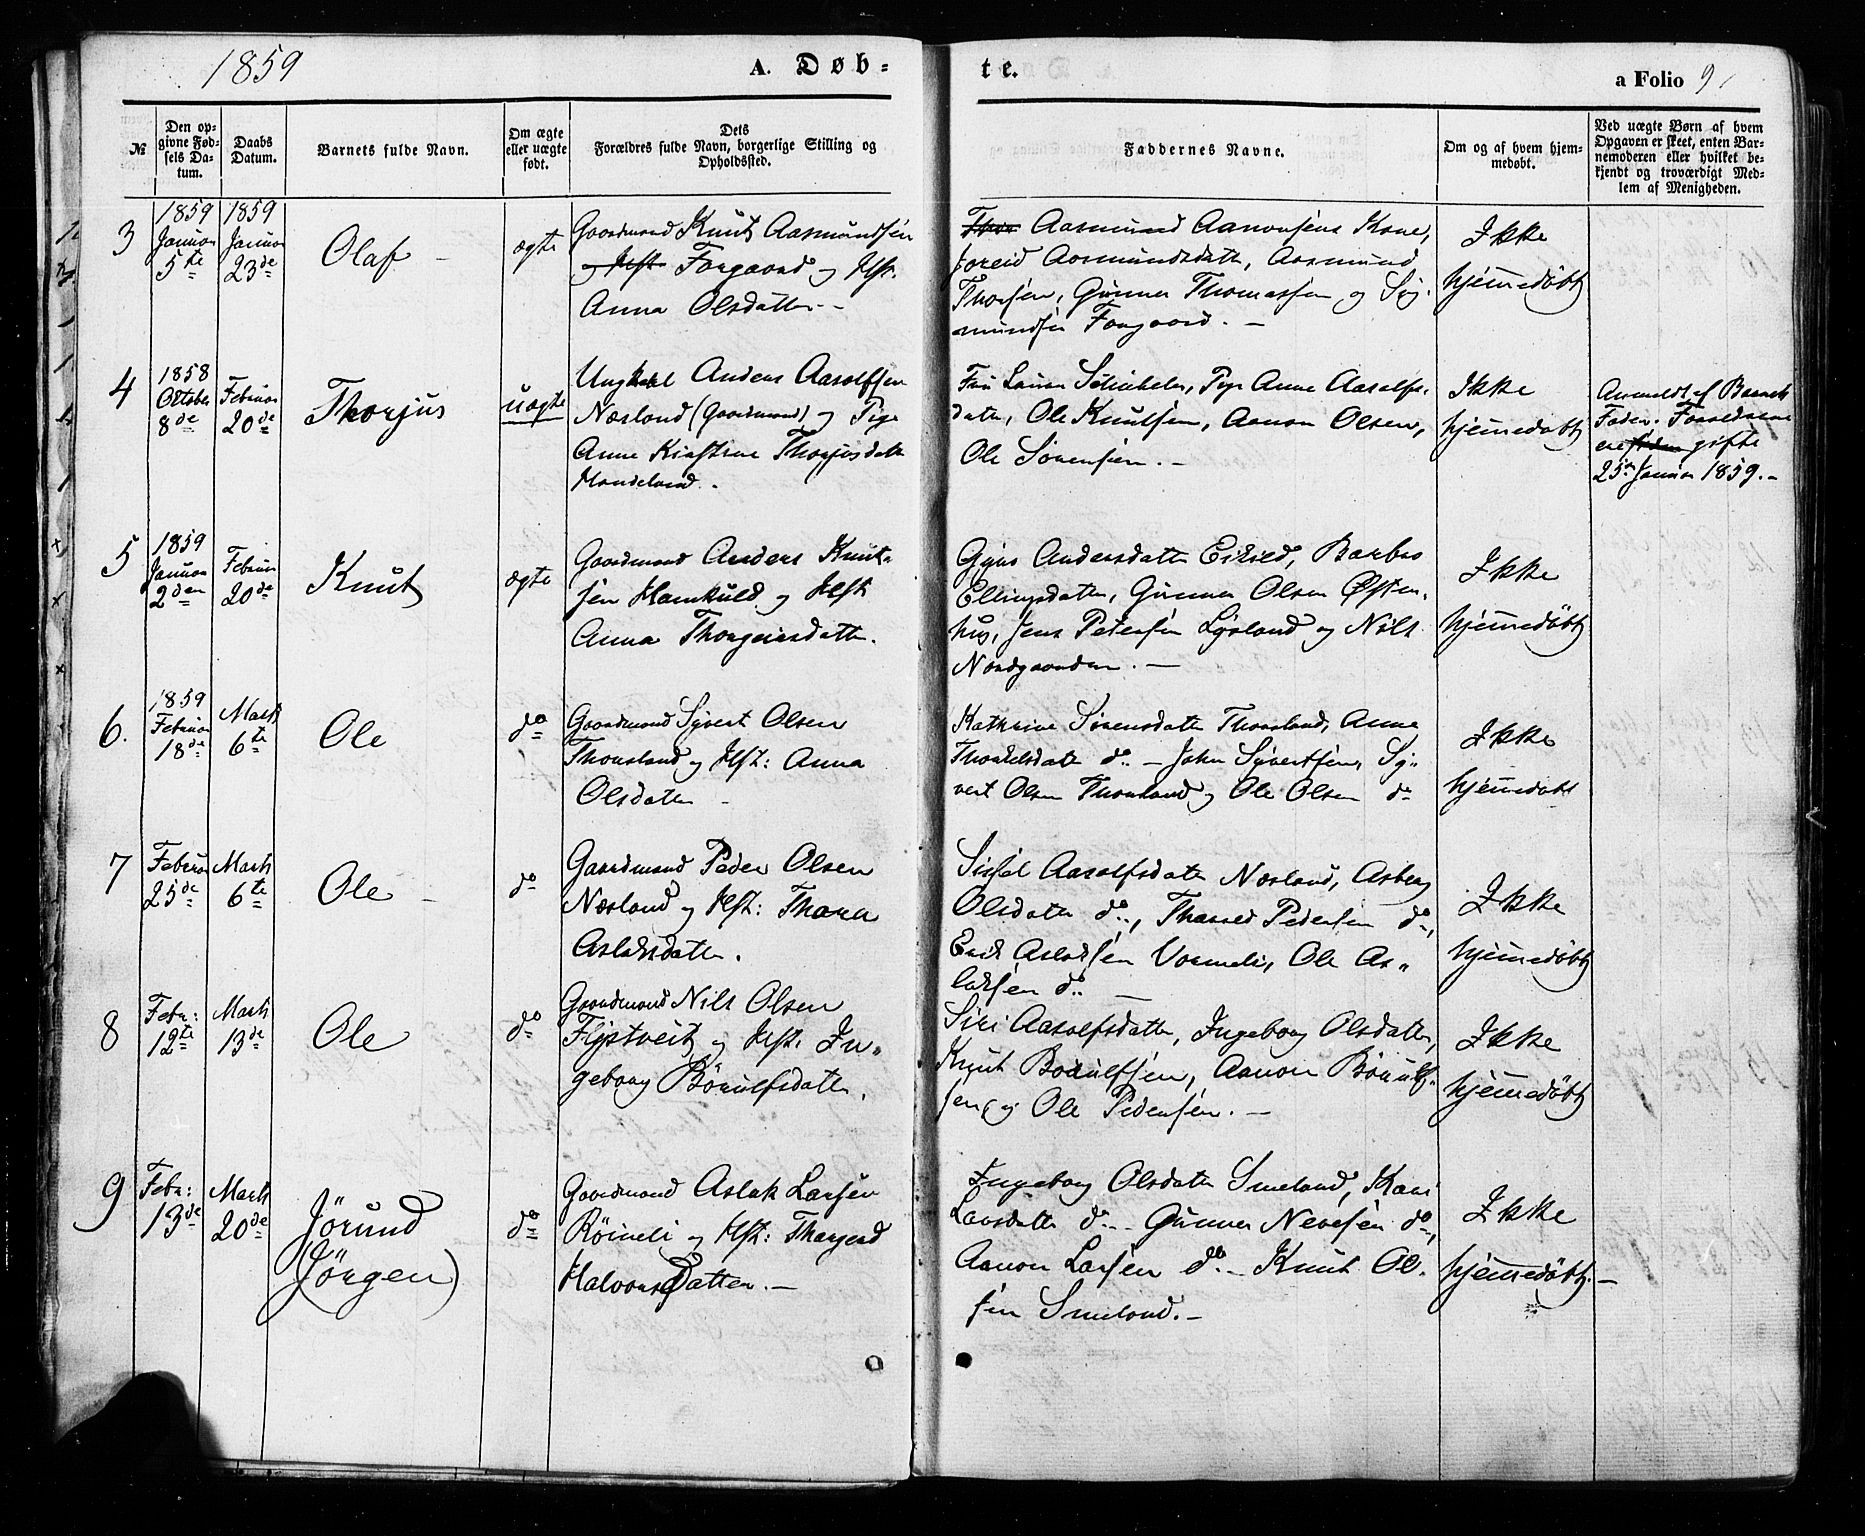 1859
A. Døb-
te.
a Folio 9
№
Den op-
givne Fød-
sels Da-
tum.
Daabs
Datum.
Barnets fulde Navn.
Om ægte
eller uægte
født.
Dets
Forældres fulde Navn, borgerlige Stilling og
Opholdssted.
Faddernes Navne.
Om og af hvem hjem-
medøbt.
Ved uægte Børn af hvem
Opgaven er skeet, enten Bar-
nemoderen eller hvilket be-
kjendt og troværdigt Med-
lem af Menigheden.
3
1859
Januar
5te
1859
Januar
23de
Olaf
ægte
Gaardmand Knut Aasmundsen
og Hst. Forgaard og Hst.
Anna Olsdatter
Aasmund Aanonsens Kone,
Joreid Aasmundsdatt, Aasmund
Thorsen, Gunner Thomassen og Sig-
mundsen Forgaard.
Ikke
hjemmedøbt
4
1858
Oktober
8de
Februar
20de
Thorjus
uægte
Ungkarl Anders Aasolfsen
Næsland (Gaardmand) og Pige
Anne Kirstine Thorjusdatt
Handeland.
Fru Laura, Pige Anne Aasolfs-
datter, Ole Knutsen, Aanon Olsen,
Ole Sörensen.
Ikke
hjemmedøbt
Anmeldt af Barnets
Fader. Forældrene
ere siden gifte
25de Januar 1859.
5
1859
Januar
2den
Februar
20de
Knut
ægte
Gaardmand Anders Knut-
sen Hamkuld og Hst.
Anna Thorgeirsdatter.
Gyro Andersdatter Eikild, Barbro
Ellingsdatter, Gunner Olsen Østen-
hus, Jens Petersen Lysland og Nils
Nordgaarden.
Ikke
hjemmedøbt
6.
1859
Februar
18de
Marts
6te
Ole
do
Gaardmand Syvert Olsen
Thorsland og Hst: Anna
Olsdatter
Kathrine Sörensdatter Thorsland, Anne
do - John Syvertsen, Sy-
vert Olsen Thorsland og Ole Olsen do
Ikke
hjemmedøbt
7
Februar
25de
Marts
6te
Ole
do
Gaardmand Peder Olsen
Næsland og Hst: Thora
Aslaksdatter.
Sissel Aasolfsdatter Næsland, Asberg
Olsdatter do, Pedersen do,
Erik Aslaksen Vormeli, Ole As-
laksen do
Ikke
hjemmedøbt
8
Febr:
12te
Marts
13de
Ole
do
Gaardmand Nils Olsen
Flystveit og Hst. In-
geborg Börulfsdatter.
Siri Aasolfsdatter, Ingeborg Olsdatter,
Knut Börulfsen, Aanon Börulf-
sen, og Ole Pedersen.
Ikke
hjemmedøbt
9
Febr:
13de
Marts
20de
Jörund
(Jörgen)
do
Gaardmand Aslak Larsen
Röineli og Hst: Thorgerd
HalvorsDatter.
Ingeborg Olsdatter Smeland, Kari
Larsdatter do - Gunner Nevesen do,
Aanon Larsen do - Knut Ol-
sen Smeland.
Ikke
hjemmedøbt.